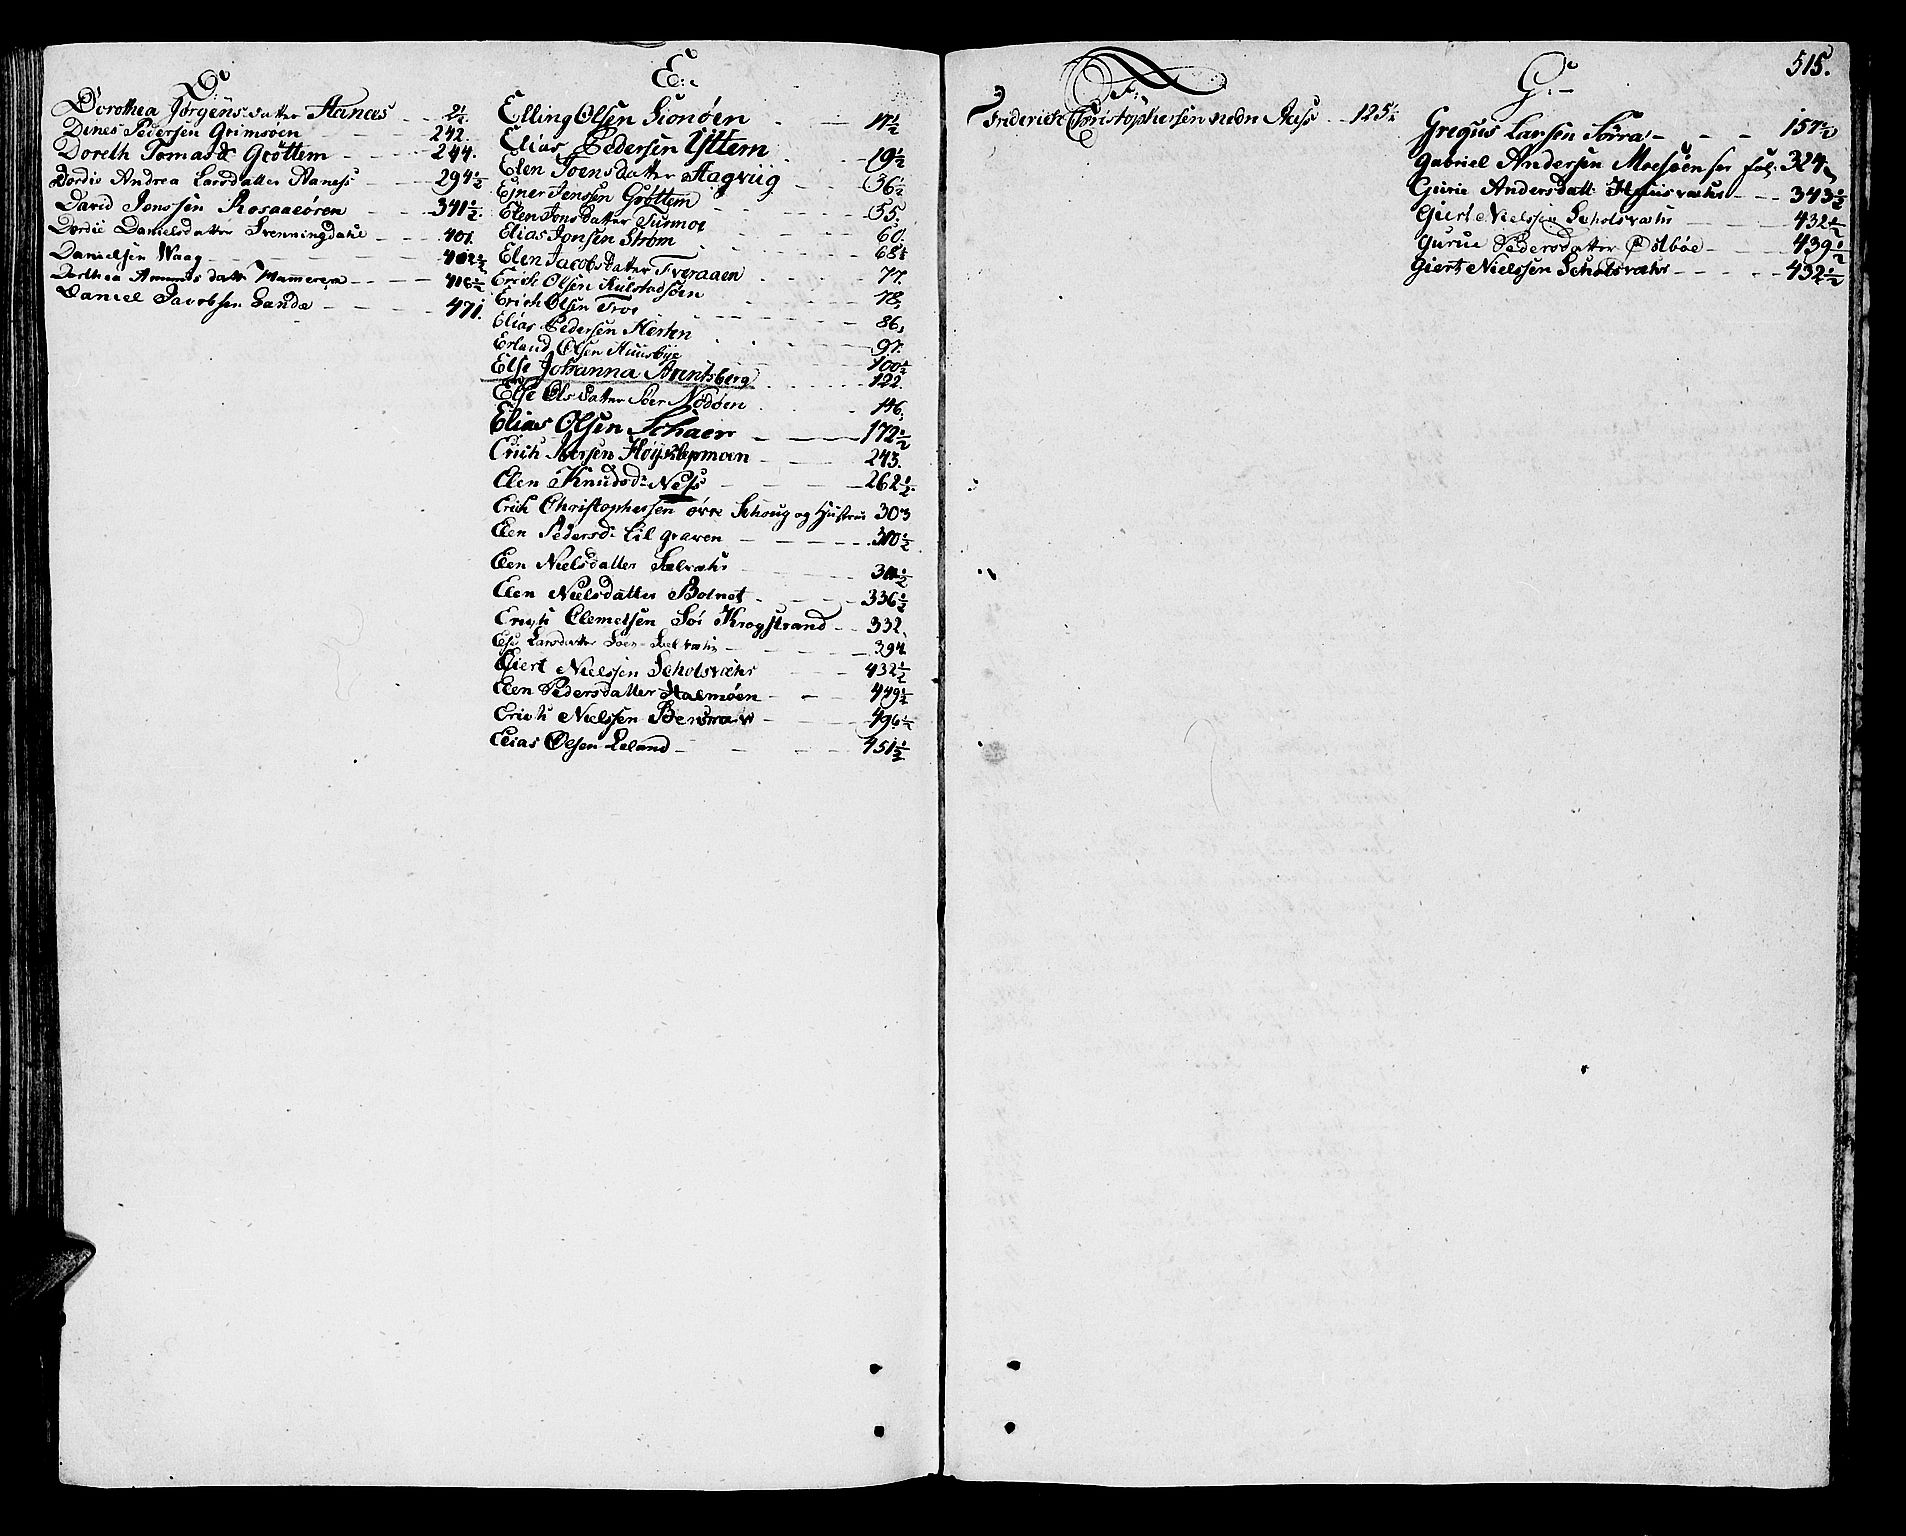 D:
Dorothea Jørgens datter Aanæs - - 2½.
Dines Pedersen Grimsøen - - 242.
Doreth Tomasd: Grøttem - - - 244.
Dordie Andrea Larsdatter Aaness - - 294½
David Jonssen Rosaaeøren - - 341½.
Dordie Danielsdatter Svenningdahl - - 401.
Danielsen Waag - - - 402½
Dorthea Amunds datter - - - 418½
Daniel Jacobsen Sandæ - - - 471.
E:
Elling Olsen - - 17½
Elias Pedersen Yttem - - 19½
Elen Joensdatter Hagviig - - 36½
Ejner Jensen Grøttem - - 55.
Elen Jonsdatter - - 60.
Elias Jonsen Strøm - - 68½
Elen Jacobsdatter Tveraaen - - 77.
Erich Olsen Kulstadsøen - - 78.
Erich Olsen Troe - - 86.
Elias Pedersen Herten - - 97.
Erland Olsen Huusbye - - 100½
Else Johanna Arentsberg - - 122.
Else Olsdatter Søer - - 146.
Elias Olsen Schaer - - 172½
Erich Iversen - - 243.
Elen Knudsd: Ness - - 262½.
Erich Christophersen øvre Schoug og Hustrue 303
Elen Pedersd: til graven - - 310½
Elen Nielsdatter - - 311½
Elen Nielsdatter Bolnet - - 336½
Erich Clemetsen Søi Krogstrand - - 332.
Else Larsdatter Søer - - 394.
Giert Nielssen Scholsvæhr - - 432½
Elen Pedersdatter Halmøen - - 449½
Erich Nielssen - - 496½
Elias Olsen Leland - - 451½
F:
Friderich Christophersen nedre Aass - - 125½
515.
G:
Gregus Larsen - - - 157½
Gabriel Andersen Moesøen see fol: 324.
Gurie Andersdatt: - - - 343½
Giert Nielssen Scholsvæhr - - 432½
Gurue Pedersdatter Østbøe - - 439½
Giert Nielssen Scholsvæhr - - - - 432½